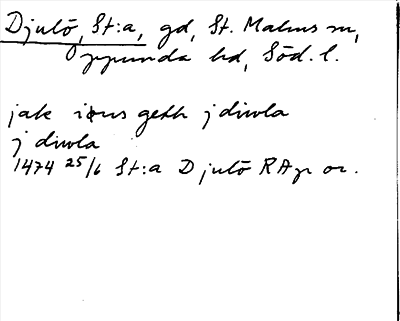 Djulö, St:a, gd, St. Malms sn,
Oppunda hd, Söd. l.
jak ious geth j diwla
j diwla
1474 25/6 St:a Djulö RAp or.